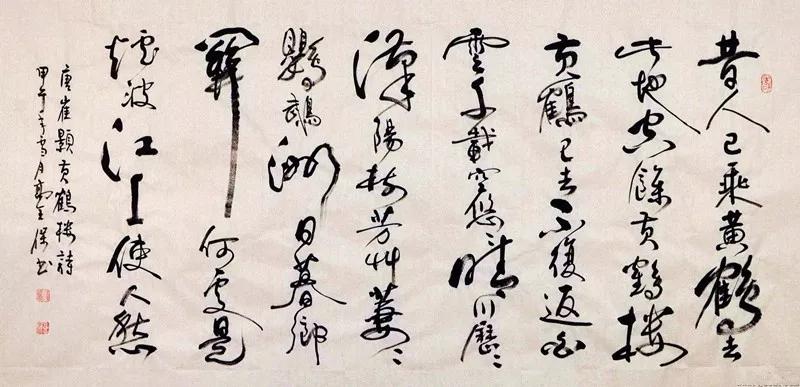 昔人已乘黃鶴去
此地空餘黃鶴樓
黃鶴已去不復返白
雲千載空悠〻晴川歷〻
漢陽樹芳艸萋〻
鸚鵡洲日暮鄉
關何處是
煙波江上使人愁
唐崔顥黃鶴樓詩
甲午年雪月书